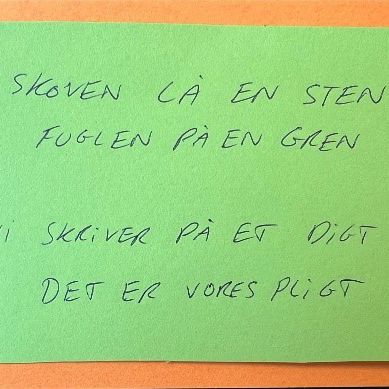 SKOVEN LÅ EN STEN
FUGLEN PÅ EN GREN
i SKRIVER PÅ ET DIGT
DET ER VORES PLIGT